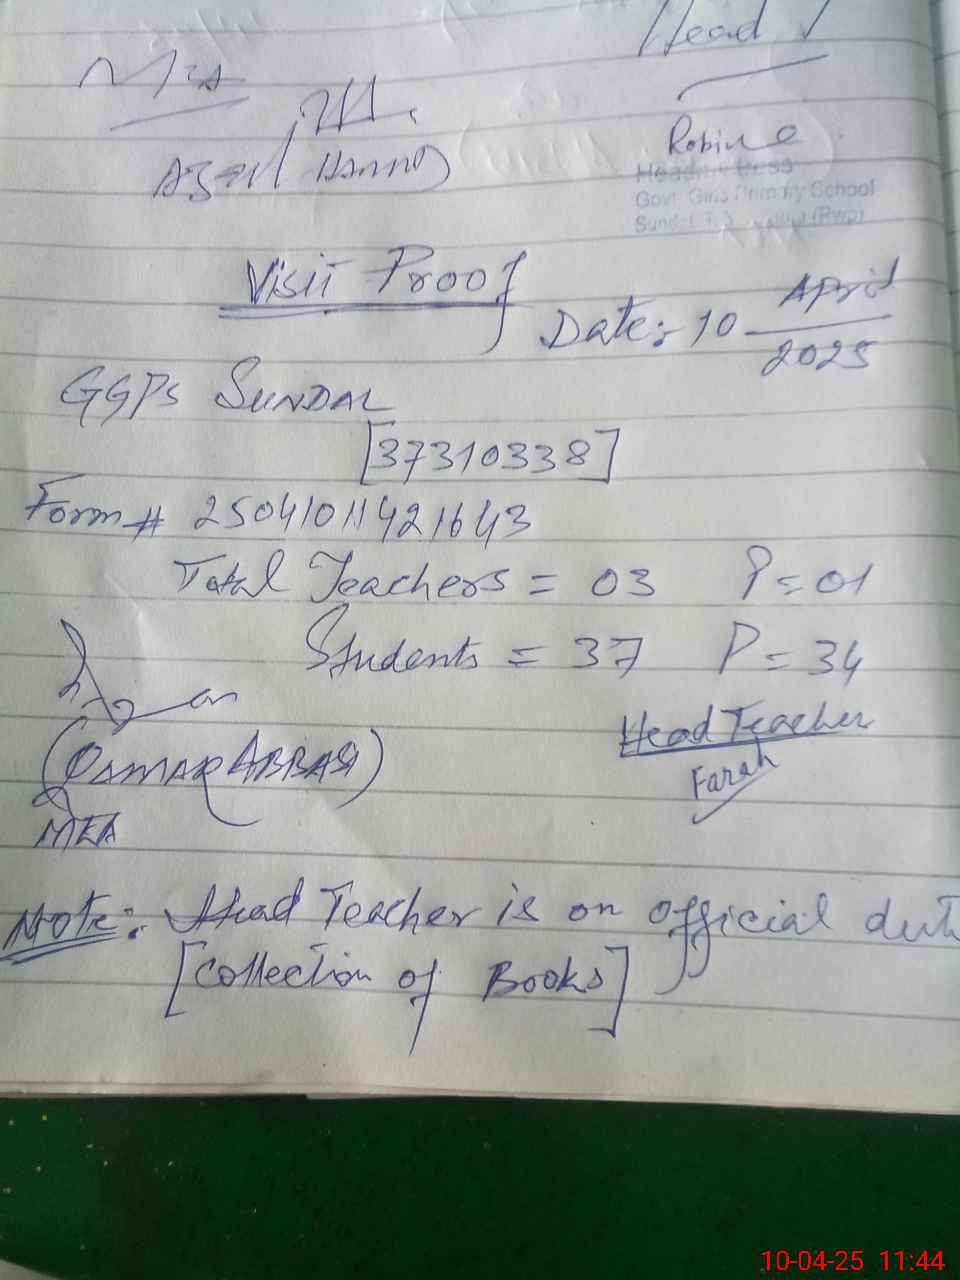 Head T
MEA
Robina
Headmistress
Govt Girls Primary School
Visit Proof
Date: 10 April 2025
GGPS SUNDAL
[37310338]
Form # 25041011421643
Total Teachers = 03 P = 01
Students = 37 P = 34
Head Teacher
Farah
(QAMAR ABBASI)
MEA
Note: Head Teacher is on official dut
[Collection of Books]
10-04-25 11:44